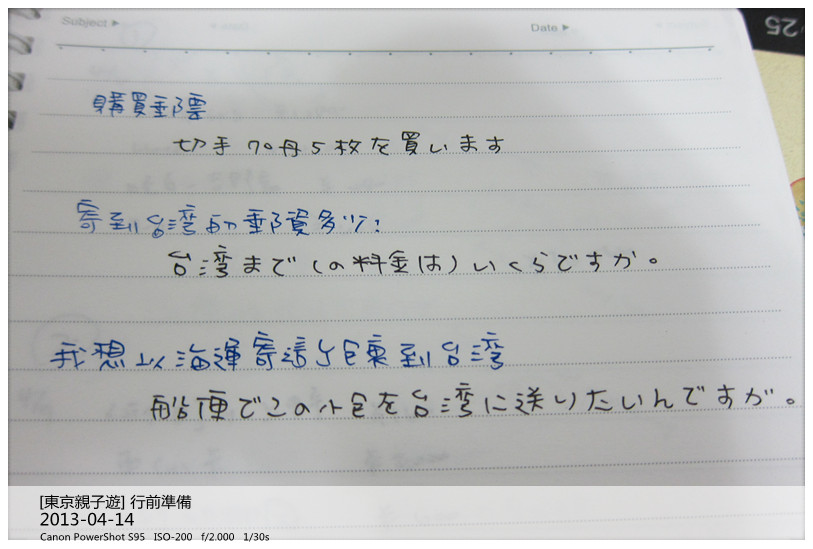 Subject ▶ Date ▶
25
購買郵票
切手 70円 5 枚を買います
寄到台湾的郵資多少?
台湾まで(の料金は)いくらですか。
我想以海運寄這个包裹到台湾
船便でこの小包を台湾に送りたいんですが。
[東京親子遊] 行前準備
2013-04-14
Canon PowerShot S95 ISO-200 f/2.000 1/30s